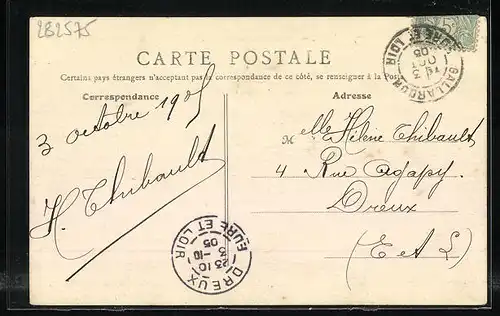 282575
CARTE POSTALE
Certains pays étrangers n'acceptant pas la correspondance de ce côté, se renseigner à la Poste
Correspondance
Adresse
3 octobre 1905
H. Thibault
Melle Hélène Thibault
4 Rue Agapy.
Dreux
(E et L)
GALLARDON
EURE ET LOIR
3
OCT
05
DREUX
EURE ET LOIR
23 10
3-10
05
5